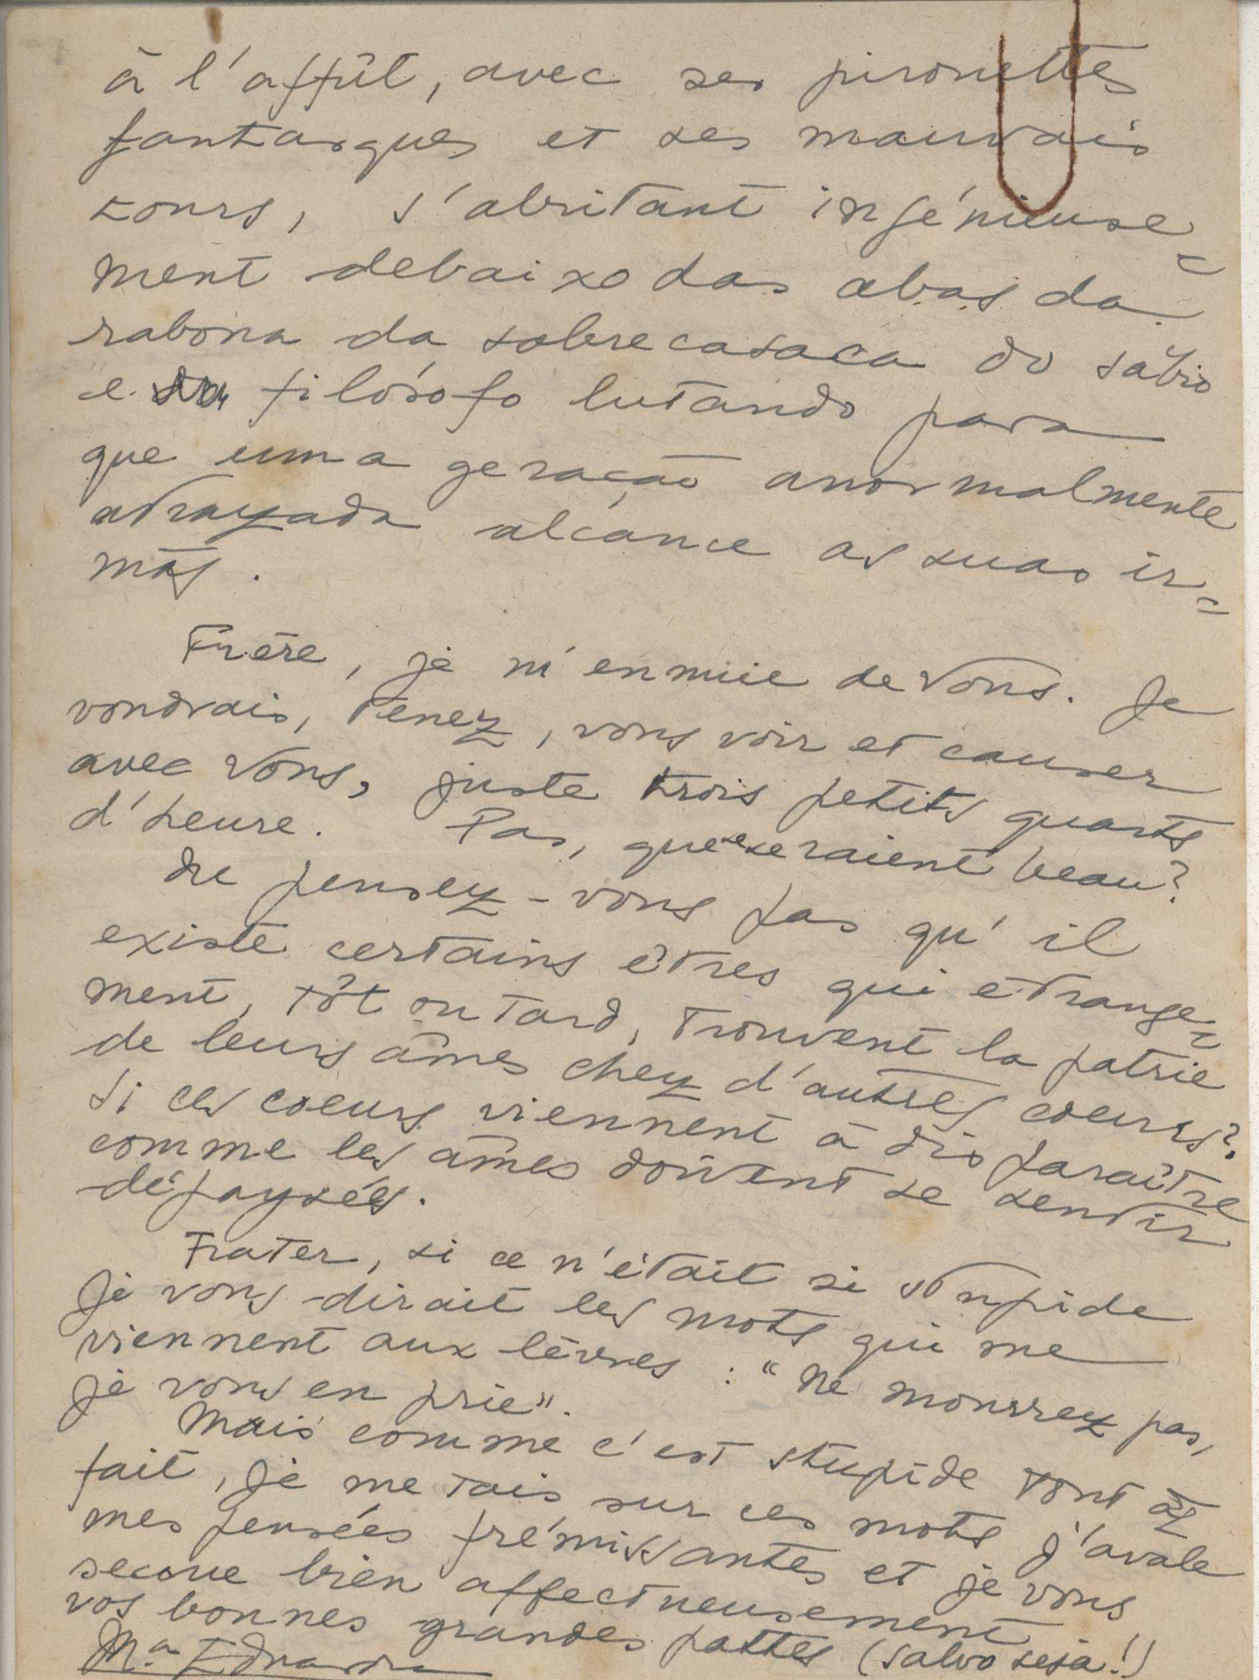 à l'affût, avec ses pirouettes
fantasques et ses mauvais
tours, s'abritant ingénieuse=
ment debaixo das abas da
rabona da sobrecasaca do sábio
e filósofo lutando para
que uma geração anormalmente
atrazada alcance as suas ir=
mãs.
Frère, je m'ennuie de Vous. Je
voudrais, tenez, vous voir et causer
avec Vous, juste trois petits quarts
d'heure. Pas, que seraient beau?
Ne pensez-vous pas qu'il
existe certains êtres qui etrange=
ment, tôt ou tard, trouvent la patrie
de leurs âmes chez d'autres coeurs?
Si ces coeurs viennent à disparaître
comme les âmes doivent se sentir
dépaysées.
Frater, si ce n'était si stupide
Je vous dirait les mots qui me
viennent aux lèvres : "Ne mourrez pas,
je vous en prie".
Mais comme c'est stupide tout à
fait, je me tais sur ces mots j'avale
mes pensées frémissantes et je vous
secoue bien affectueusement
vos bonnes grandes pattes (salvo seja!)
Mª Eduarda